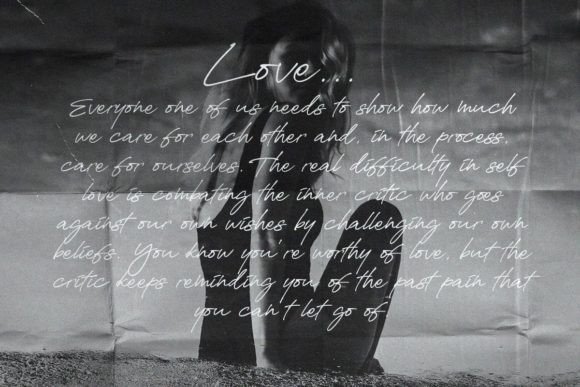 Love...
Everyone one of us needs to show how much
we care for each other and, in the process,
care for ourselves. The real difficulty in self
love is combating the inner critic who goes
against our own wishes by challenging our own
beliefs. You know you're worthy of love, but the
critic keeps reminding you of the past pain that
you can't let go of